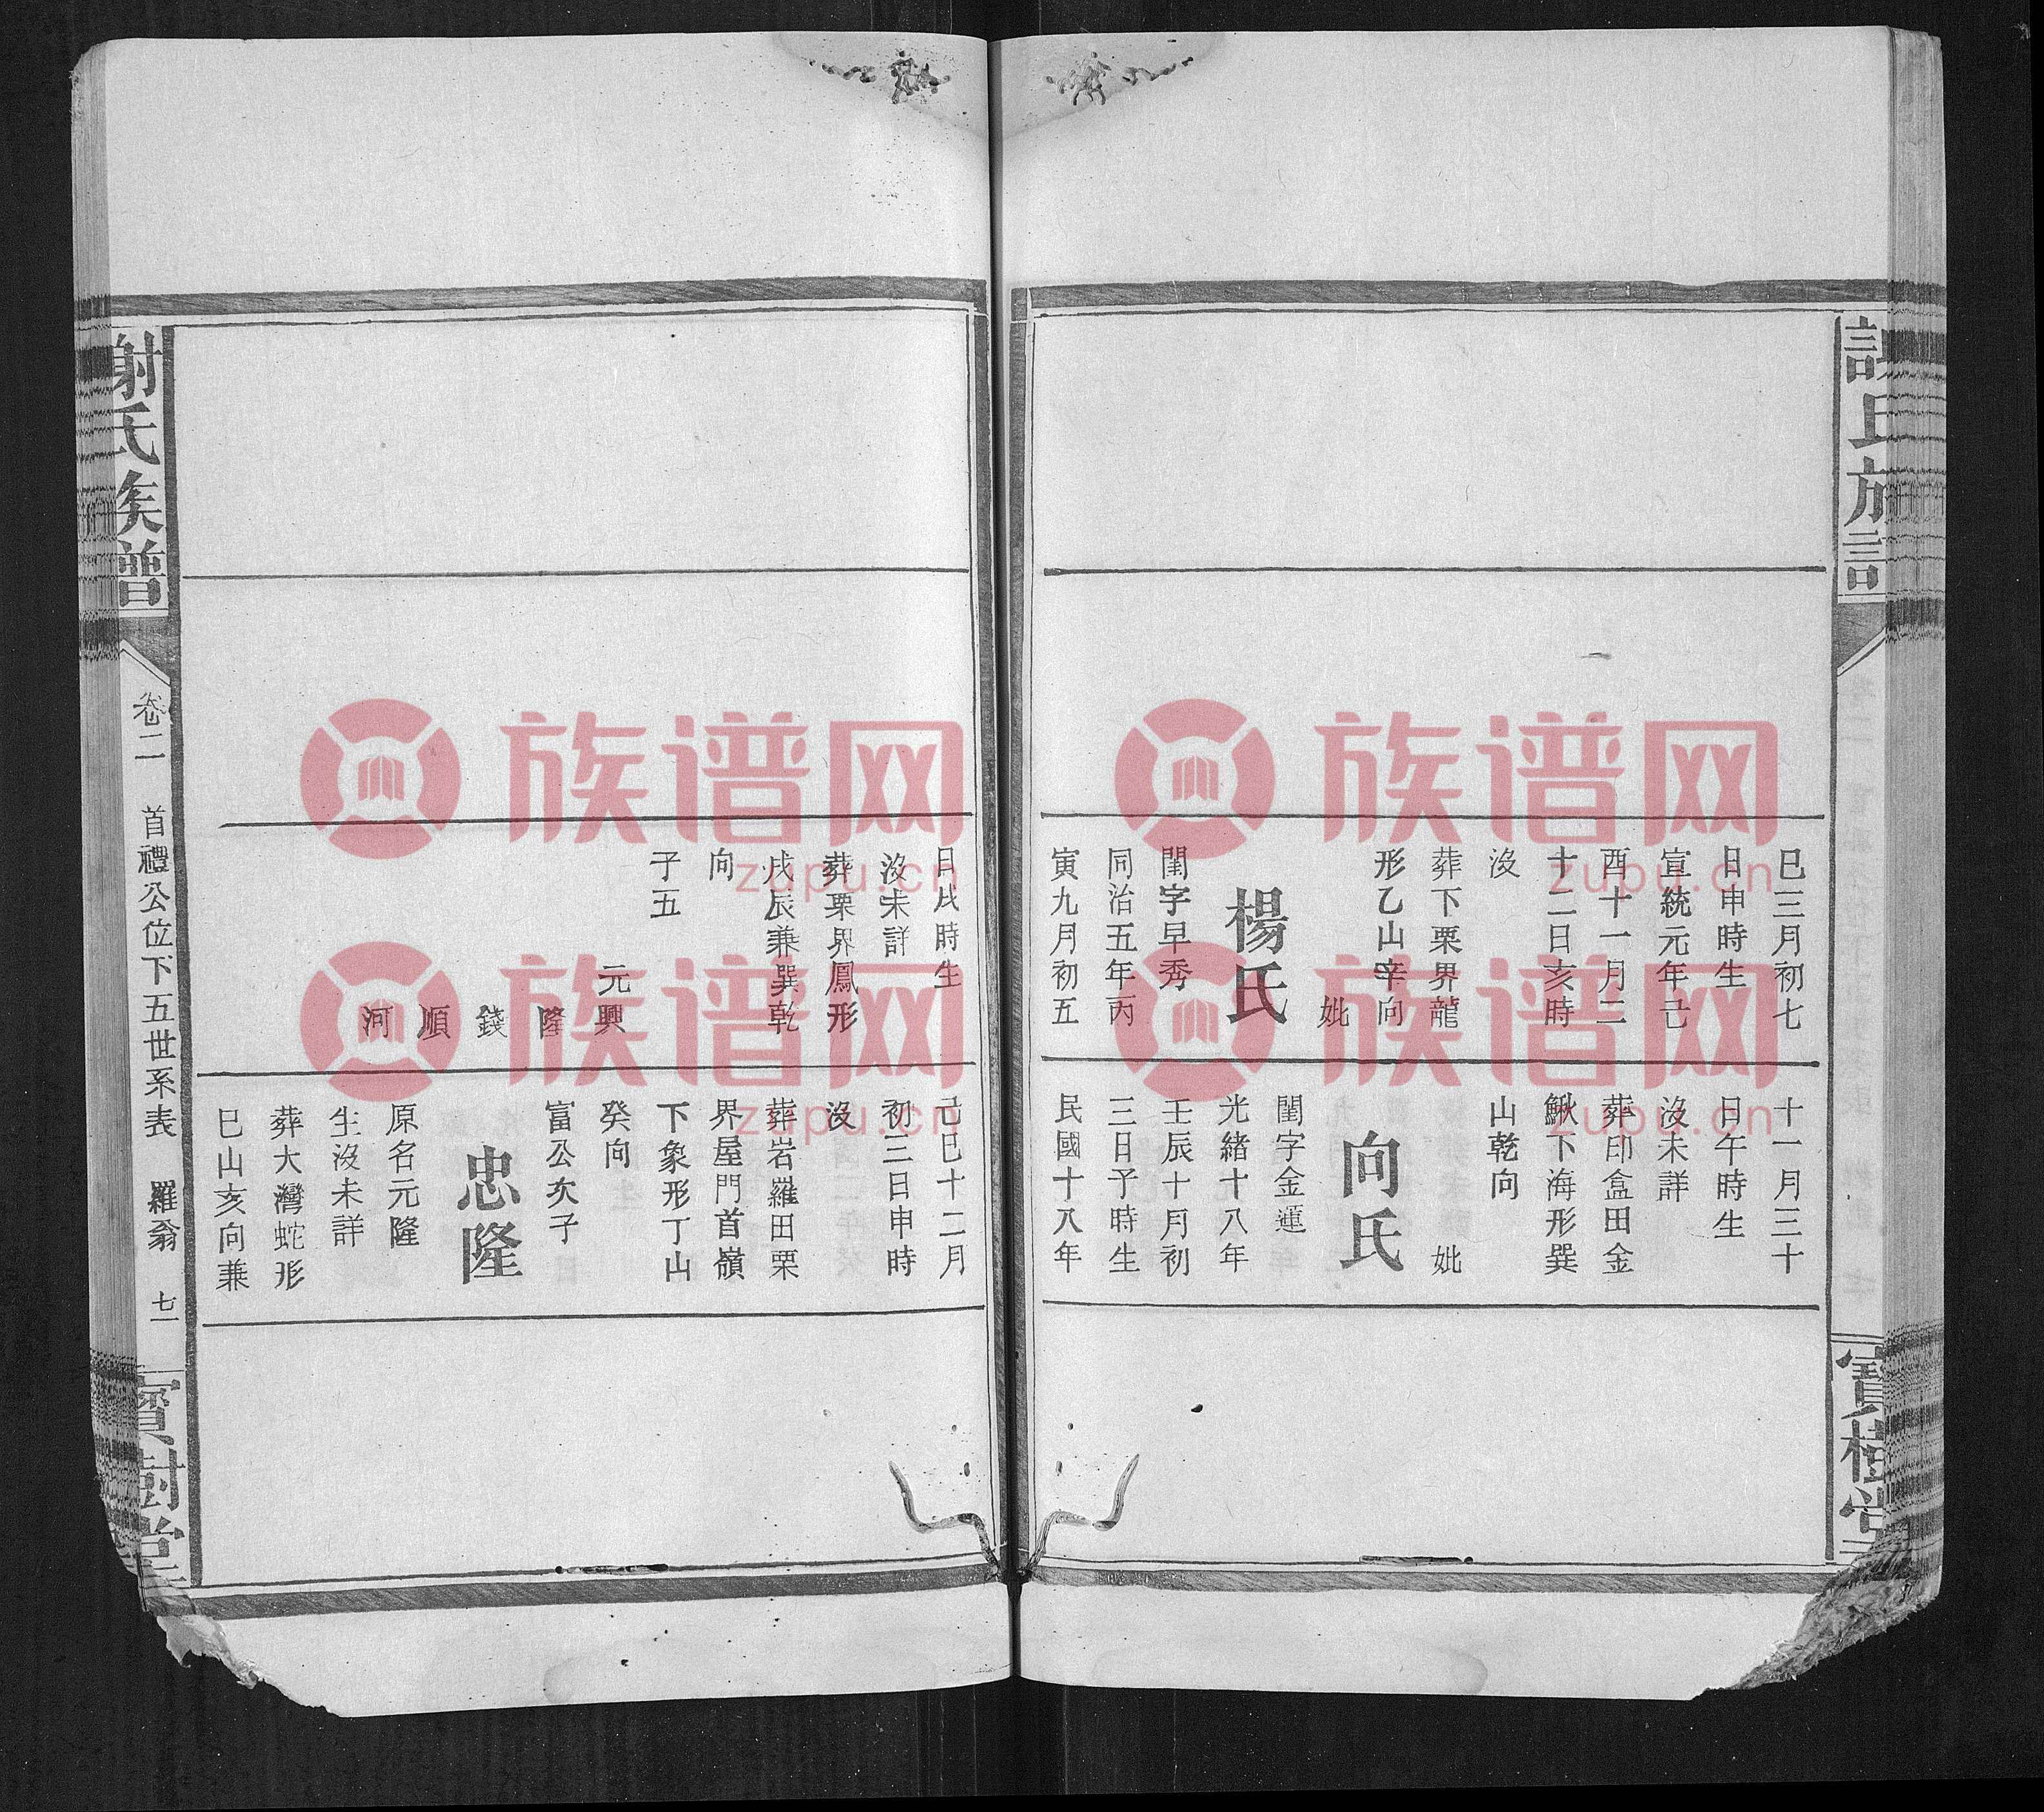 巳三月初七
日申時生
宣統元年己
酉十一月二
十二日亥時
沒
葬下栗界龍
形乙山辛向
妣
楊氏
閨字早秀
同治五年丙
寅九月初五
十一月三十
日午時生
沒未詳
葬印盒田金
鰍下海形巽
山乾向
妣
向氏
閨字金蓮
光緒十八年
壬辰十月初
三日予時生
民國十八年
寶樹堂
日戌時生
沒未詳
葬栗界鳳形
戌辰兼巽乾
向
子五
元興
隆
錢
順
河
己巳十二月
初三日申時
沒
葬岩羅田栗
界屋門首嶺
下象形丁山
癸向
富公次子
忠隆
原名元隆
生沒未詳
葬大灣蛇形
巳山亥向兼
謝氏族譜
卷二
首禮公位下五世系表
羅翁
七一
寶樹堂
族谱网
zupu.cn
族谱网
zupu.cn
族谱网
zupu.cn
族谱网
zupu.cn